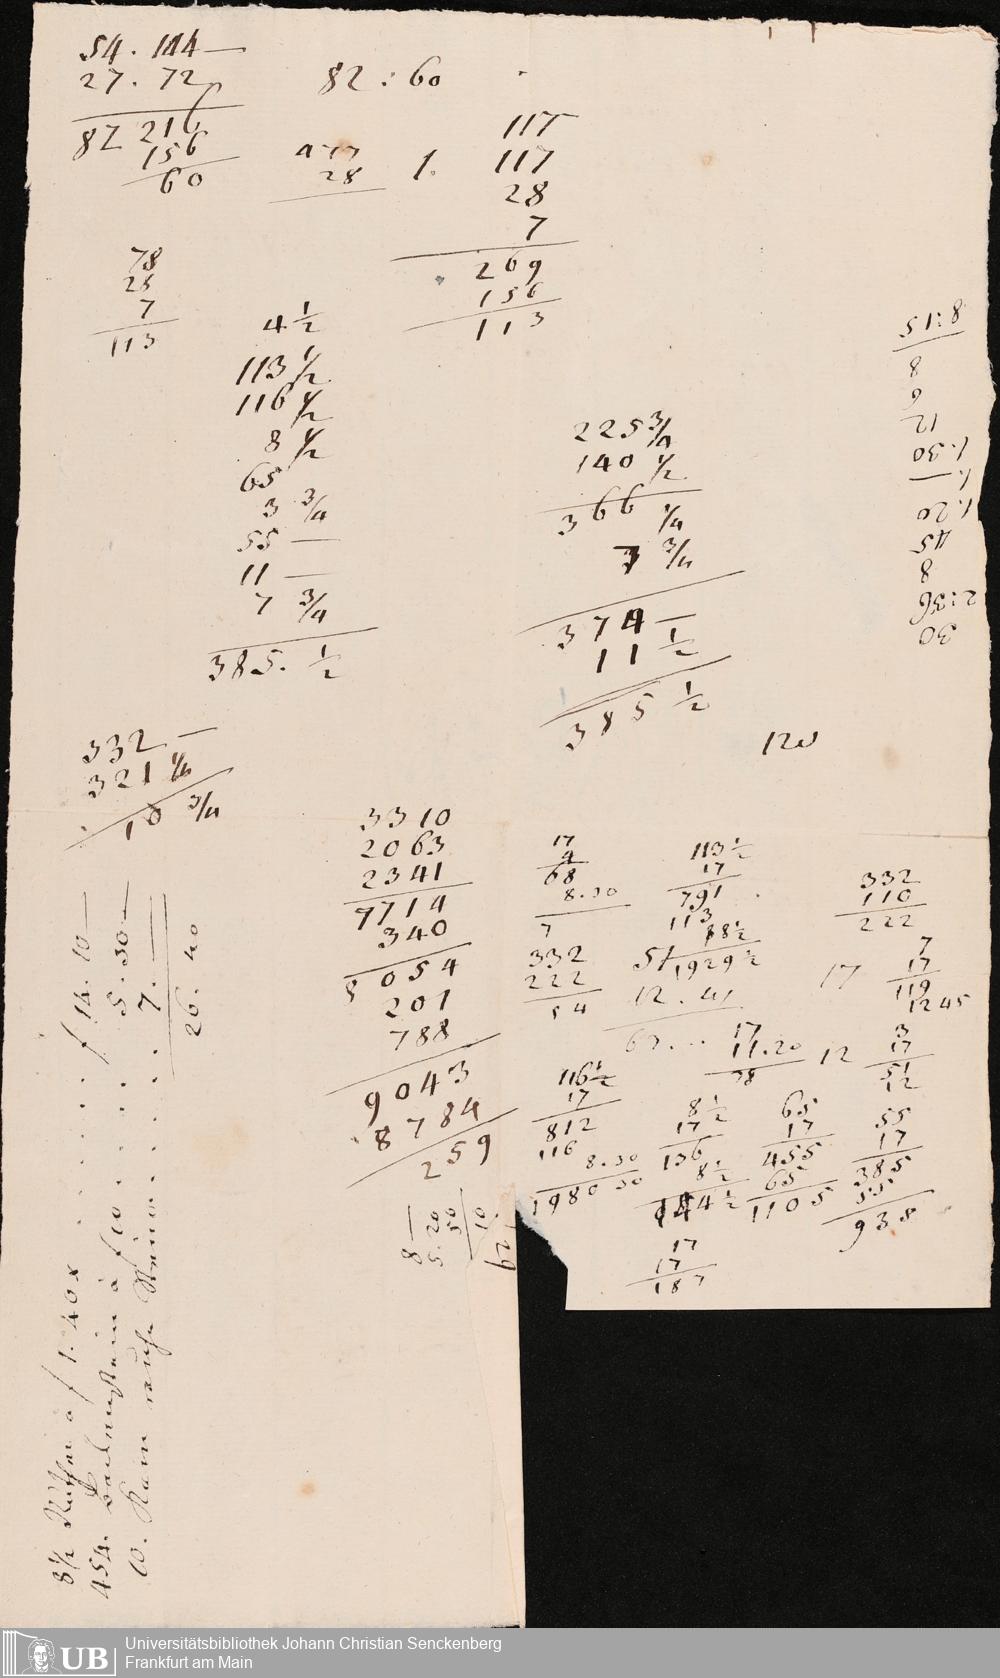 54. 144 —
27. 72
82 216
156
60
82 : 60
28
1.
117
117
28
7
269
156
113
78
28
7
113
4 1/2
113 1/2
116 1/2
8 1/2
65
3 3/4
55 —
11 —
7 3/4
385. 1/2
225 3/4
140 1/2
366 1/4
7 3/4
374 —
11 1/2
385 1/2
8
6
12
1.30
1. —
1.20
45
8
2:36
30
120
332 —
321 1/4
10 3/4
3310
2063
2341
7714
340
8054
201
788
9043
8784
259
17
4
68
8.30
7
332
222
54
113 1/2
17
791
113
8 1/2
1929 1/2
51
12. 41
332
110
222
17
7
17
119
1245
17
11.20
78
12
3
17
51
12
116 1/2
17
812
116
8.30
1980 30
8 1/2
17
136
8 1/2
144 1/2
65
17
455
65
1105
55
17
385
55
938
17
17
187
8 —
5.20
50
10
8 1/2 Ruthen à f 1. 40 x . . . . . . f 14. 10 —
454. à f 10 . . . . 5. 30 —
10. Karn rauhe Steine . . . . . 7. —
26. 40
Universitätsbibliothek Johann Christian Senckenberg
Frankfurt am Main
UB